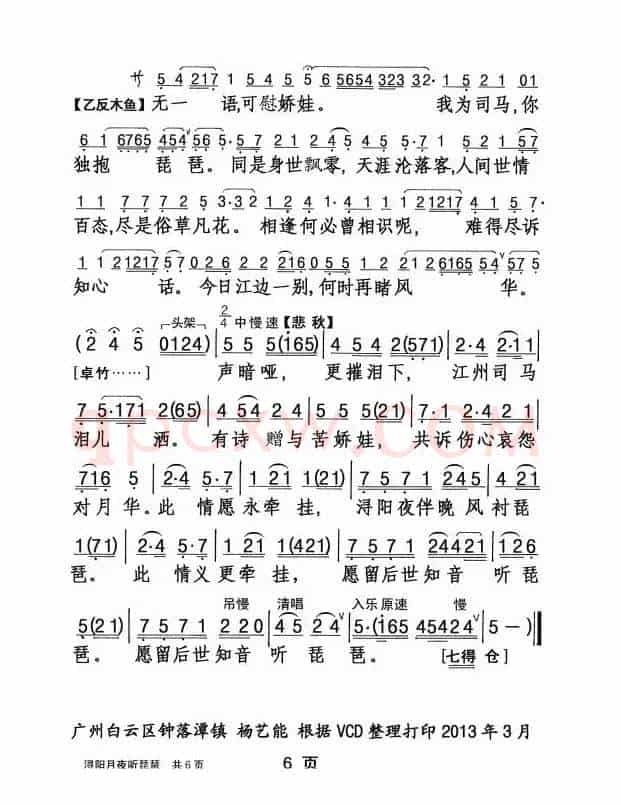 サ 5 4 217 1 5 4 5 5 6 5654 323 32· 1 5 2 1 01
【乙反木鱼】无一 语,可慰娇娃。 我为司马,你
6 1 6765 454 565· 5· 7 2 5 2 1 2 4 1 2 1 5 2 1 57
独抱 琵琶。同是身世飘零,天涯沦落客,人间世情
1 1 7 7 7 2 5 1 2 7· 7 2 2 2 4 2 1 21217 1 4 5 7·
百态,尽是俗草凡花。相逢何必曾相识呢, 难得尽诉
1 1 2 121217 57 02 6 2 2 2 2 4 216 0 5 5 7 1 2 6165 54 575
知心 话。今日江边一别,何时再睹风 华。
头架 2/4 中慢速【悲秋】
(2 4 5 0124) | 5 5 5(165) | 4 5 4 2(571) | 2·4 2·11 |
[卓竹……] 声暗哑, 更摧泪下, 江州司马
7 5·171 2(65) | 4 54 2 4 | 5 1 2 5(05) | 2·4 2 421 |
泪儿 洒。有诗赠与苦娇娃,共诉伤心哀怨
716 5 | 2·4 5·7 | 1 21 1(71) | 7 5 7 1 2 45 | 4 21 |
对月华。此情愿永牵挂,浔阳夜伴晚风衬琵
1(71) | 2·4 5·7 | 1 21 1(421) | 7 5 7 1 24421 | 126 |
琶。此情义更牵挂, 愿留后世知音听琵
吊慢 清唱 入乐原速 慢
5(21) | 7 5 7 1 2 20 | 45 24 | 5·(165 45424 | 5 –) ‖
琶。愿留后世知音听琵琶。 [七得 仓]
广州白云区钟落潭镇 杨艺能 根据 VCD 整理打印 2013 年 3 月
浔阳月夜听琵琶 共 6 页 6 页